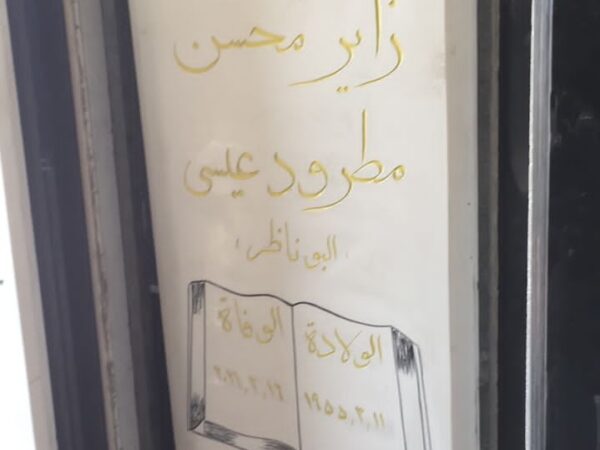 زاير محسن
مطرود عيسى
(البو ناظر)
الولادة
١٩٥٥,٣,١١
الوفاة